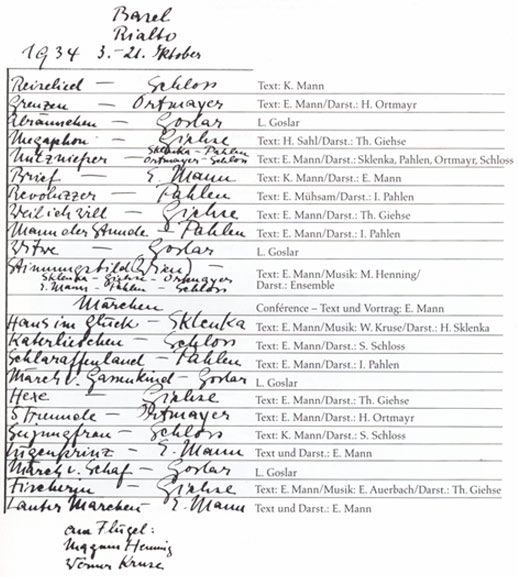 Basel
Rialto
1934 3.-21. Oktober
Reiselied — Schloss Text: K. Mann
Grenzen — Ortmayer Text: E. Mann/Darst.: H. Ortmayr
— Goslar L. Goslar
Megaphon — Giehse Text: H. Sahl/Darst.: Th. Giehse
Nutzniesser — Sklenka - Pahlen - Ortmayer - Schloss Text: E. Mann/Darst.: Sklenka, Pahlen, Ortmayr, Schloss
Brief — E. Mann Text: K. Mann/Darst.: E. Mann
Revoluzzer — Pahlen Text: E. Mühsam/Darst.: I. Pahlen
Weil ich will — Giehse Text: E. Mann/Darst.: Th. Giehse
Mann der Stunde — Pahlen Text: E. Mann/Darst.: I. Pahlen
Witwe — Goslar L. Goslar
Stimmungsbild (Wien) —
Sklenka - Giehse - Ortmayer Text: E. Mann/Musik: M. Henning/
E. Mann - Pahlen - Schloss Darst.: Ensemble
Märchen Conférence – Text und Vortrag: E. Mann
Hans im Glück — Sklenka Text: E. Mann/Musik: W. Kruse/Darst.: H. Sklenka
Katerlieschen — Schloss Text: E. Mann/Darst.: S. Schloss
Schlaraffenland — Pahlen Text: E. Mann/Darst.: I. Pahlen
Märch. v. — Goslar L. Goslar
Hexe — Giehse Text: E. Mann/Darst.: Th. Giehse
5 Freunde — Ortmayer Text: E. Mann/Darst.: H. Ortmayr
Seejungfrau — Schloss Text: K. Mann/Darst.: S. Schloss
Lügenprinz — E. Mann Text und Darst.: E. Mann
Märch. v. Schaf — Goslar L. Goslar
Fischerin — Giehse Text: E. Mann/Musik: E. Auerbach/Darst.: Th. Giehse
Lauter Märchen E. Mann Text und Darst.: E. Mann
am Flügel:
Magnus Henning
Werner Kruse